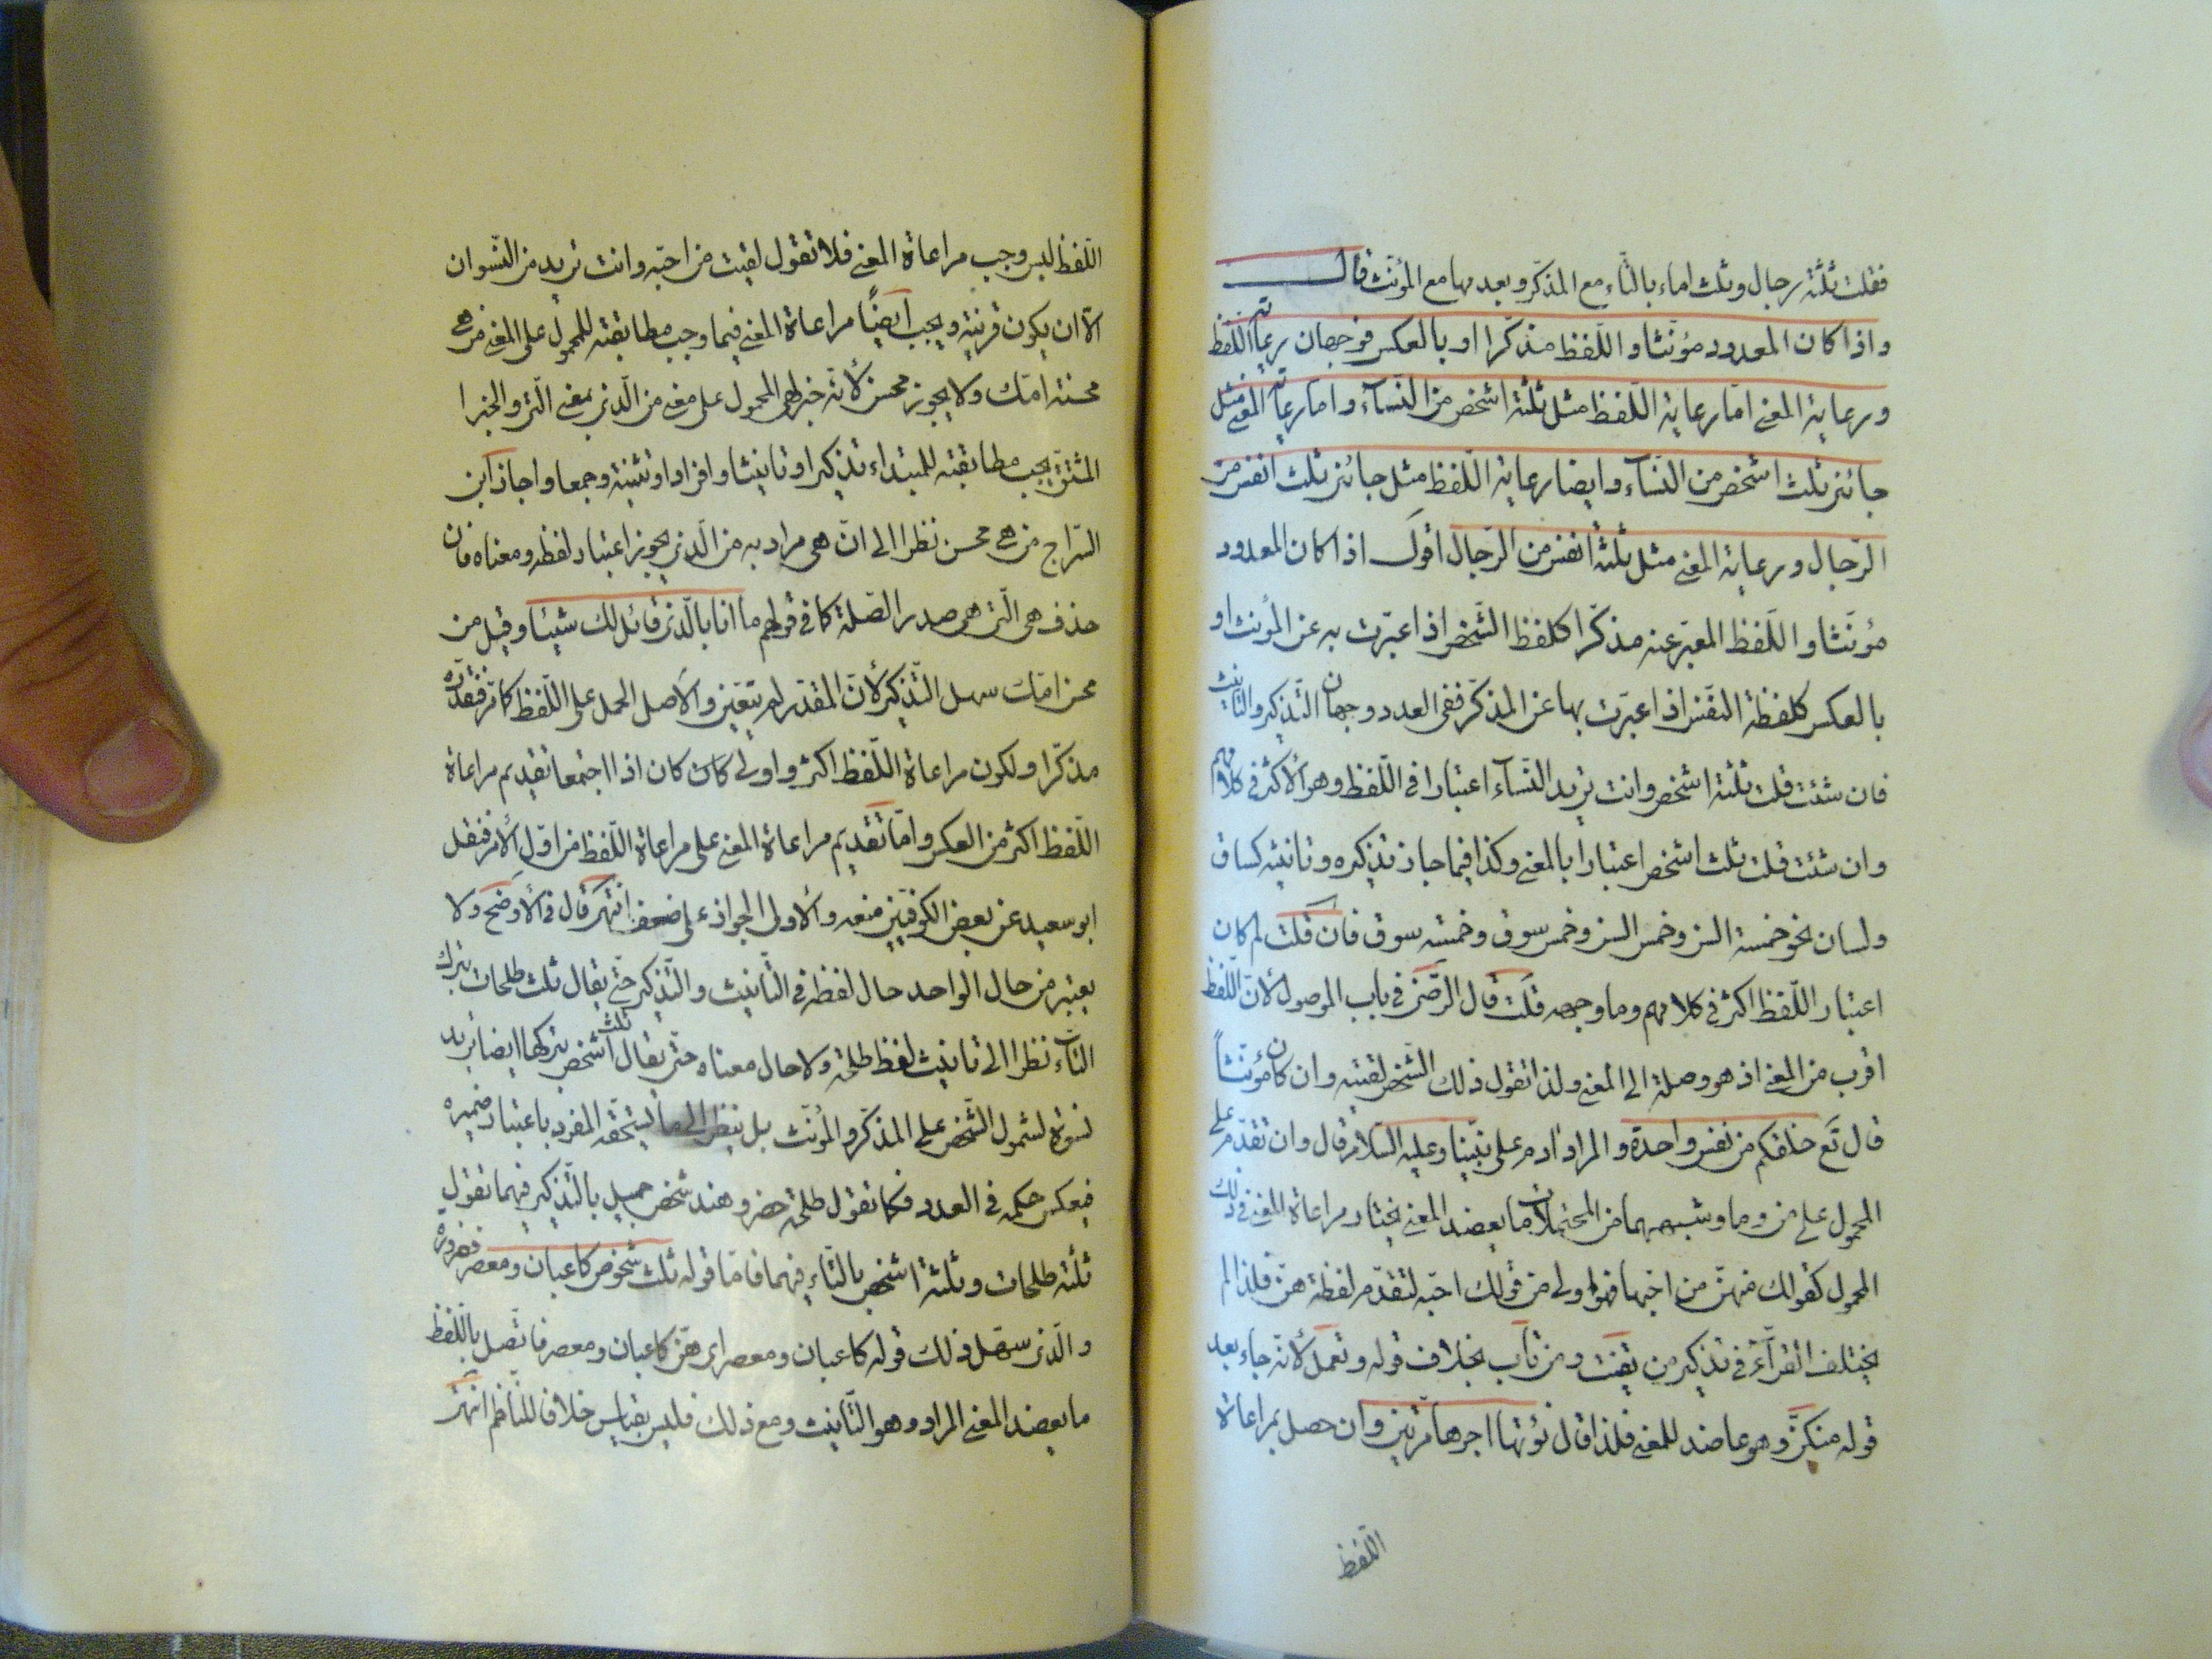 فقلت ثلثة رجال وثلث اماء بالتّاء مع المذكّر وبعدمها مع المؤنّث قال
واذا كان المعدود مؤنّثا واللّفظ مذكّرا او بالعكس فوجهان رعاية اللّفظ
ورعاية المعنى امّا رعاية اللّفظ مثل ثلثة اشخص من النّسآء وامّا رعاية المعنى مثل
جائنى ثلث اشخص من النّسآء وايضا رعاية اللّفظ مثل جائنى ثلث انفس من
الرّجال ورعاية المعنى مثل ثلثة انفس من الرّجال اقول اذا كان المعدود
مؤنّثا واللّفظ المعبّر عنه مذكّرا كلفظ الشّخص اذا عبّرت به عن المؤنث او
بالعكس كلفظة النّفس اذا عبّرت بها عن المذكّر ففى العدد وجهان التّذكير والتّانيث
فان شئت قلت ثلثة اشخص وانت تريد النّسآء اعتبارا فى اللّفظ وهو الأكثر فى كلامهم
وان شئت قلت ثلث اشخص اعتبارا بالمعنى وكذا فيما جاز تذكيره وتانيثه كساق
ولسان نحو خمسة السن وخمس السن وخمس سوق وخمسه سوق فان قلت لم كان
اعتبار اللّفظ اكثر فى كلامهم وما وجهه قلت قال الرّضىّ فى باب الموصول لأنّ اللّفظ
اقرب من المعنى اذ هو وصلة الى المعنى ولذا تقول ذلك الشّخص لقيته وان كان مؤنّثاً
قال تع خلقكم من نفس واحدة والمراد ادم على نبيّنا وعليه السّلام قال وان تقدّم على
المحمول على من وما وشبههما من المحتملات ما يعضد المعنى يختار مراعاة المعنى فى ذلك
المحمول كقولك منهنّ من احبّها فهو اولى من قولك احبّه لتقدّم لفظة هنّ فلذا لم
يختلف القرّآء فى تذكير من يقنت ومن تاب بخلاف قوله وتعمل لأنّه جاء بعد
قوله منكنّ وهو عاضد للمعنى فلذا قال نؤتها اجرها مرّتين وان حصل بمراعاة
اللّفظ
اللّفظ لبس وجب مراعاة المعنى فلا تقول لقيت من احبّه وانت تريد من النّسوان
الّا ان يكون قرينة ويجب ايضاً مراعاة المعنى فيما وجب مطابقته للمحمول على المعنى من هى
محسنة امّك ولا يجوز محسن لأنّه خبر لهى المحمول على معنى من الّذى بمعنى الّتى والخبر
المشتقّ يجب مطابقته للمبتداء تذكيرا وتانيثا وافرادا وتثنية وجمعا واجاز ابن
السّراج من هى محسن نظرا الى انّ هى مراد به من الّذى يجوز اعتبار لفظه ومعناه فان
حذف هى الّتى هى صدر الصّلة كما فى قولهم ما انا بالّذى قائل لك شيئا وقيل من
محسن امّك سهل التّذكير لأنّ المقدّر لم يتعيّن والأصل الحمل على اللّفظ كما مرّ فتقدّره
مذكّرا ولكون مراعاة اللّفظ اكثر واولى كان كان اذا اجتمعا تقديم مراعاة
اللّفظ اكثر من العكس وامّا تقديم مراعاة المعنى على مراعاة اللّفظ من اوّل الأمر فنقل
ابو سعيد عن بعض الكوفيّين منعه والأولى الجواز على ضعف انتهى قال فى الأوضح ولا
يعتبر من حال الواحد حال لفظه فى التّانيث والتّذكير حتّى يقال ثلث طلحات بترك
التّاء نظرا الى تانيث لفظ طلحة ولا حال معناه حتّى يقال ثلث اشخص بتركها ايضا تريد
نسوة لشمول الشّخص على المذكّر والمؤنّث بل ينظر الى ما يستحقّه المفرد باعتبار ضميره
فيعكس حكمه فى العدد فكما تقول طلحة حضر وهند شخص جميل بالتّذكير فيهما تقول
ثلثة طلحات وثلثة اشخص بالتّاء فيهما فامّا قوله ثلث شخوص كاعبان ومعصر فضرورة
والّذى سهّل ذلك قوله كاعبان ومعصر اى هنّ كاعبان ومعصر فاتّصل باللّفظ
ما يعضد المعنى المراد وهو التّانيث ومع ذلك فليس بقياس خلافا للنّاظم انتهى